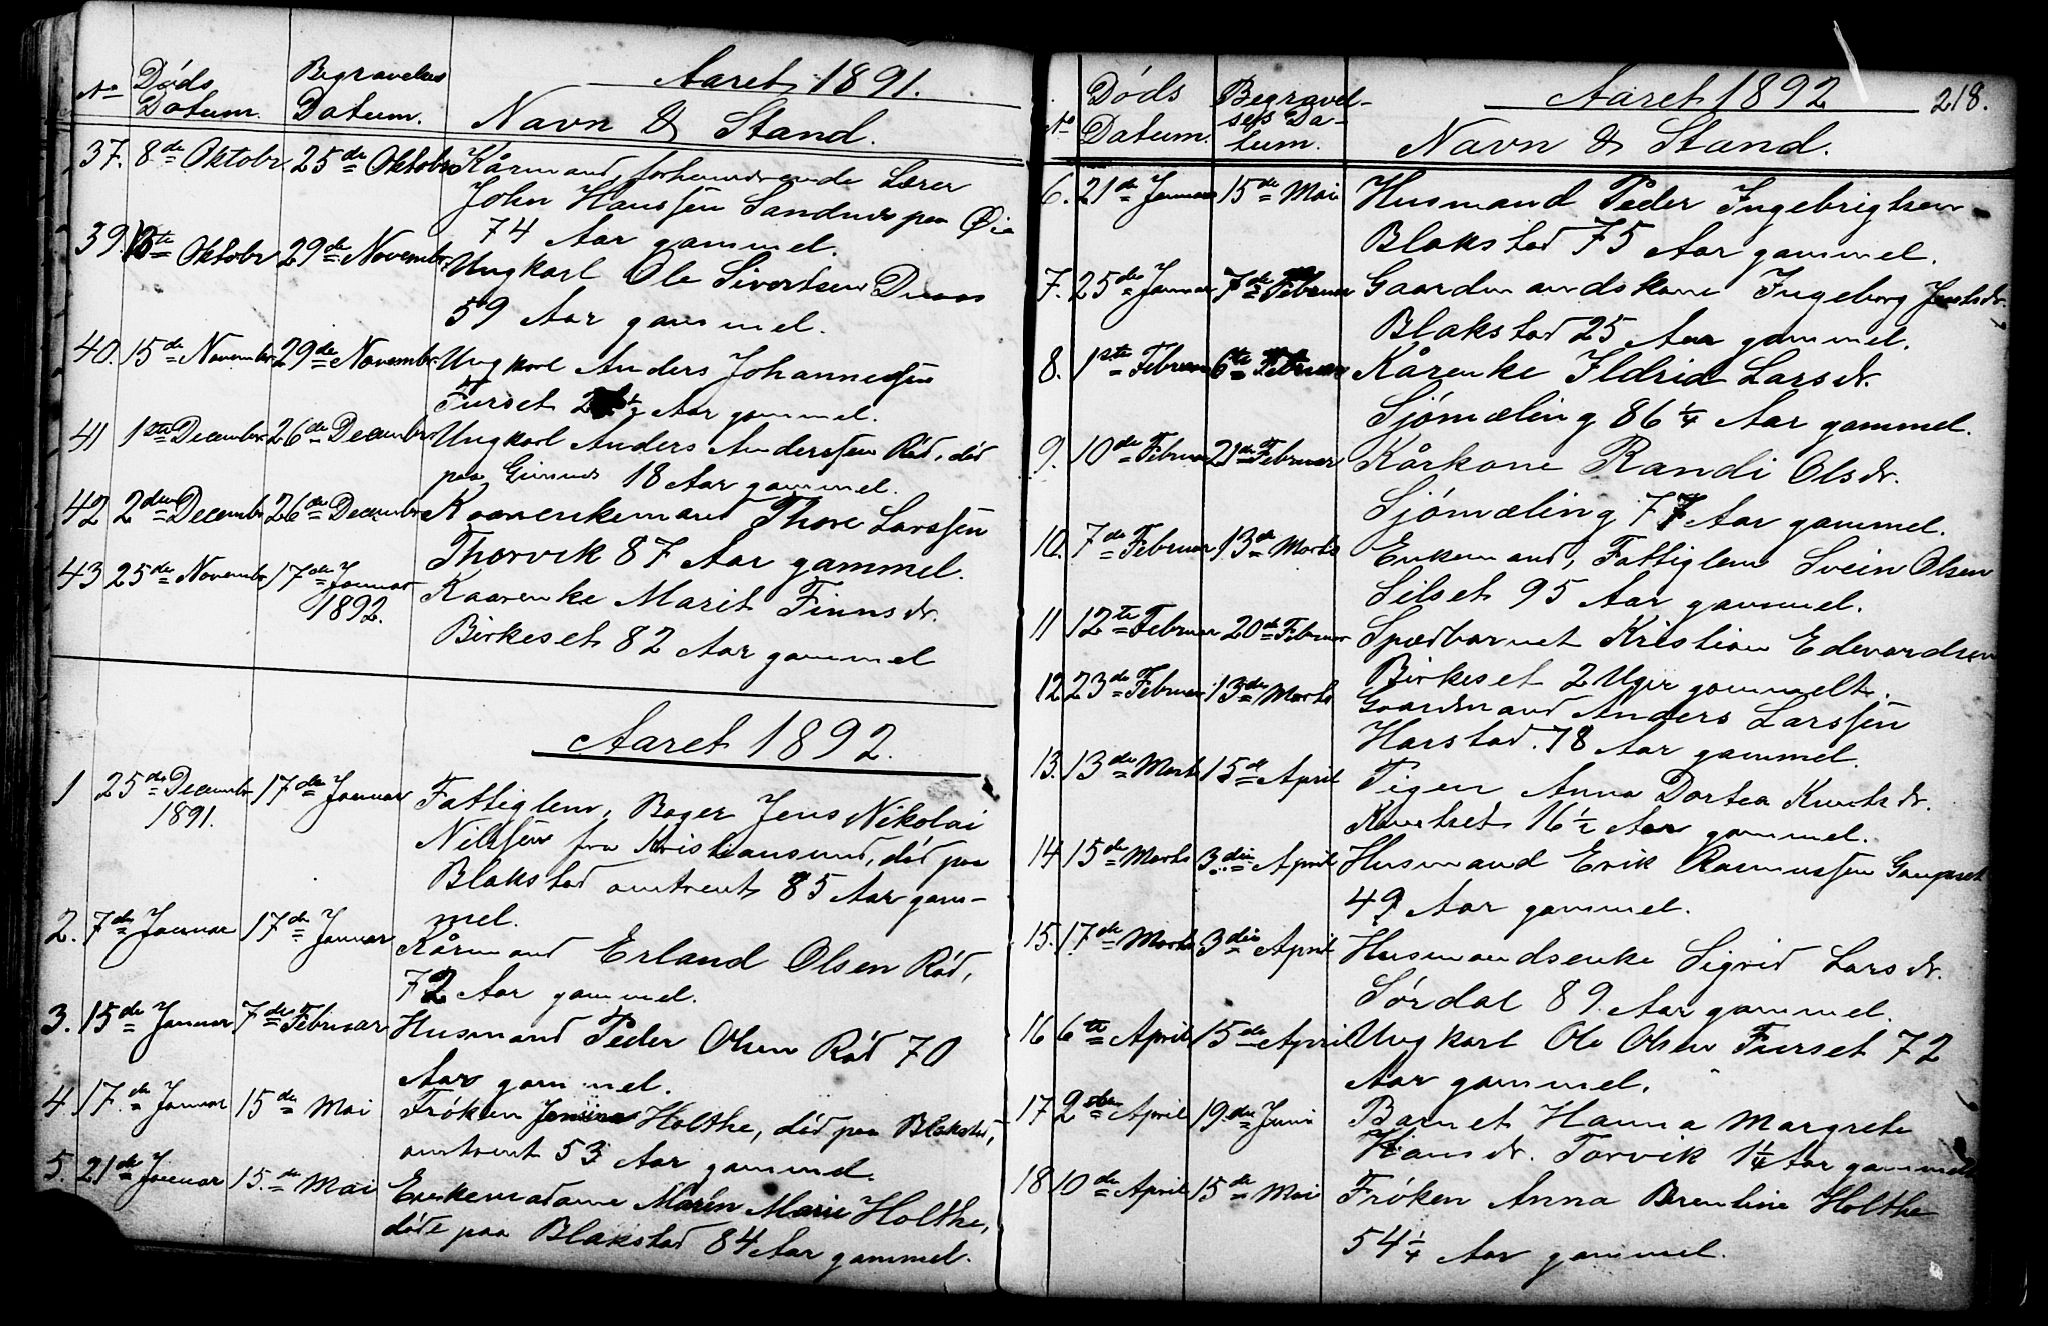 Aaret 1891.
No Døds Datum. Begravelses Datum. Navn & Stand.
37. 8de Oktobr. 25de Oktobr. Kårmand, forhenværende Lærer
John Hanssen Sandnes paa Øie
74 Aar gammel.
39. Oktobr. 29de Novembr. Ungkarl Ole Sivertsen
59 Aar gammel.
40. 15de Novembr. 29de Novembr. Ungkarl Anders Johannessen
Furset Aar gammel.
41 1ste Decembr. 26de Decembr. Ungkarl Anders Anderssen Rød, død
paa Gimnes 18 Aar gammel.
42 2den Decembr. 26de Decembr. Kaarenkemand Thore Larssen
Thorvik 87 Aar gammel.
43 25de Novembr. 17de Januar 1892. Kaarenke Marit Finnsdr.
Birkeset 82 Aar gammel
Aaret 1892.
1 25de Decembr. 1891. 17de Januar Fattiglem, Bager Jens Nikolai
Nilssen fra Kristiansund, død paa
Blakstad omtrent 85 Aar gam-
mel.
2. 7de Januar 17de Januar Kårmand Erland Olsen Rød,
72 Aar gammel.
3. 15de Januar 7de Februar Husmand Peder Olsen Rød 70
Aar gammel.
4. 17de Januar 15de Mai Frøken Holthe, død paa Blakstad,
omtrent 53 Aar gammel.
5. 21de Januar 15de Mai Enkemadame Maren Marie Holthe,
døde paa Blakstad 84 Aar gammel.
Aaret 1892 218.
No Døds Datum. Begravel-
ses Da-
tum. Navn & Stand.
6. 21de Januar 15de Mai Husmand Peder Ingebrigtsen
Blakstad 75 Aar gammel.
7. 25de Januar 7de Februar Gaardmandskone Ingeborg
Blakstad 25 Aar gammel.
8. 1ste Februar 6te Februar Kårenke Ildrid Larsdr.
Sjømæling 86 1/4 Aar gammel.
9. 10de Februar 21de Februar Kårkone Randi Olsdr.
Sjømæling 77 Aar gammel.
10. 7de Februar 13de Marts Enkemand, Fattiglem Svein Olsen
Silset 95 Aar gammel.
11 12te Februar 20de Februar Spædbarnet Kristian Edvardsen
Birkeset 2 Uger gammelt.
12 23de Februar 13de Marts Gaardmand Anders Larssen
Harstad. 78 Aar gammel.
13. 13de Marts 15de April Pigen Anna Dortea Knutsdr.
16 1/2 Aar gammel.
14 15de Marts 3die April Husmand Erik Rasmussen Gaupset
49 Aar gammel.
15. 17de Marts 3die April Husmandsenke Sigrid Larsdr.
Sørdal 89 Aar gammel.
16 6te April 15de April Ungkarl Ole Olsen Furset 72
Aar gammel.
17 2den April 19de Juni Barnet Hanna Margrete
Hansdr. Torvik 1 1/4 Aar gammel
18 10de April 15de Mai Frøken Anna Holthe
54 1/4 Aar gammel.